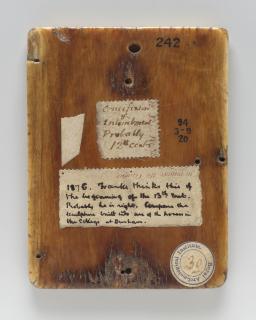 242
Crucifixion
&
Entombment
Probably
12th Cent.
94
3-9
20
1876. Franks thinks this of
the beginning of the 13th Cent.
Probably he is right. Compare the
sculpture built into one of the houses in
the College at Durham.
Institute.
30.